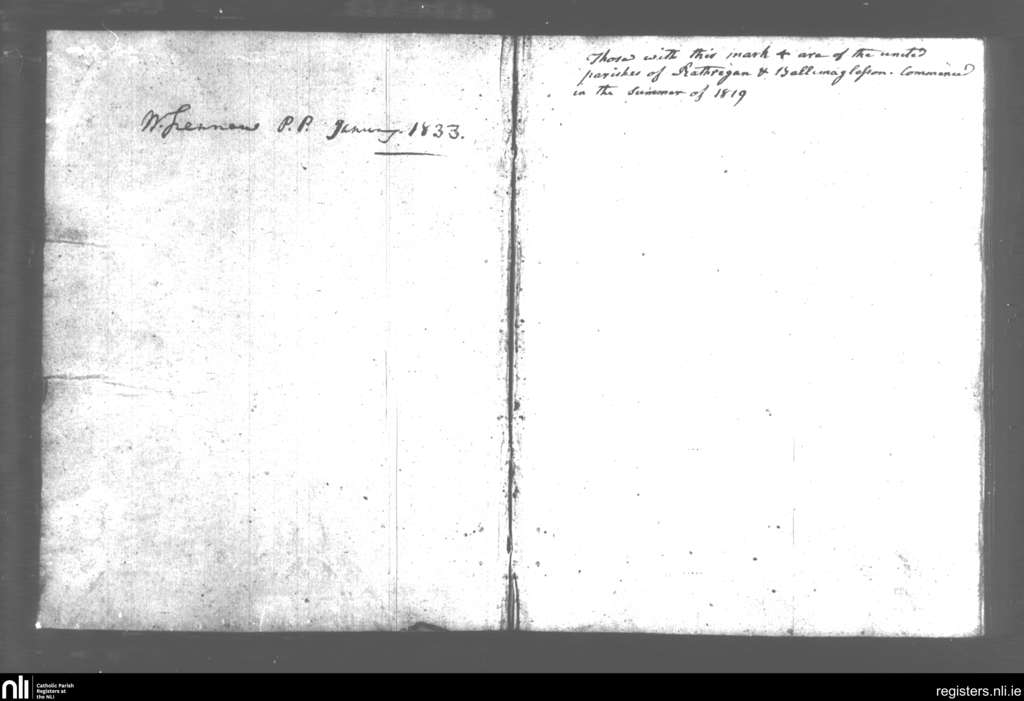 W. Lennon P.P. January. 1833.
Those with this mark + are of the united
parishes of Rathregan & Ballimaglasson. Commenced
in the Summer of 1819
nli
Catholic Parish
Registers at
the NLI
registers.nli.ie